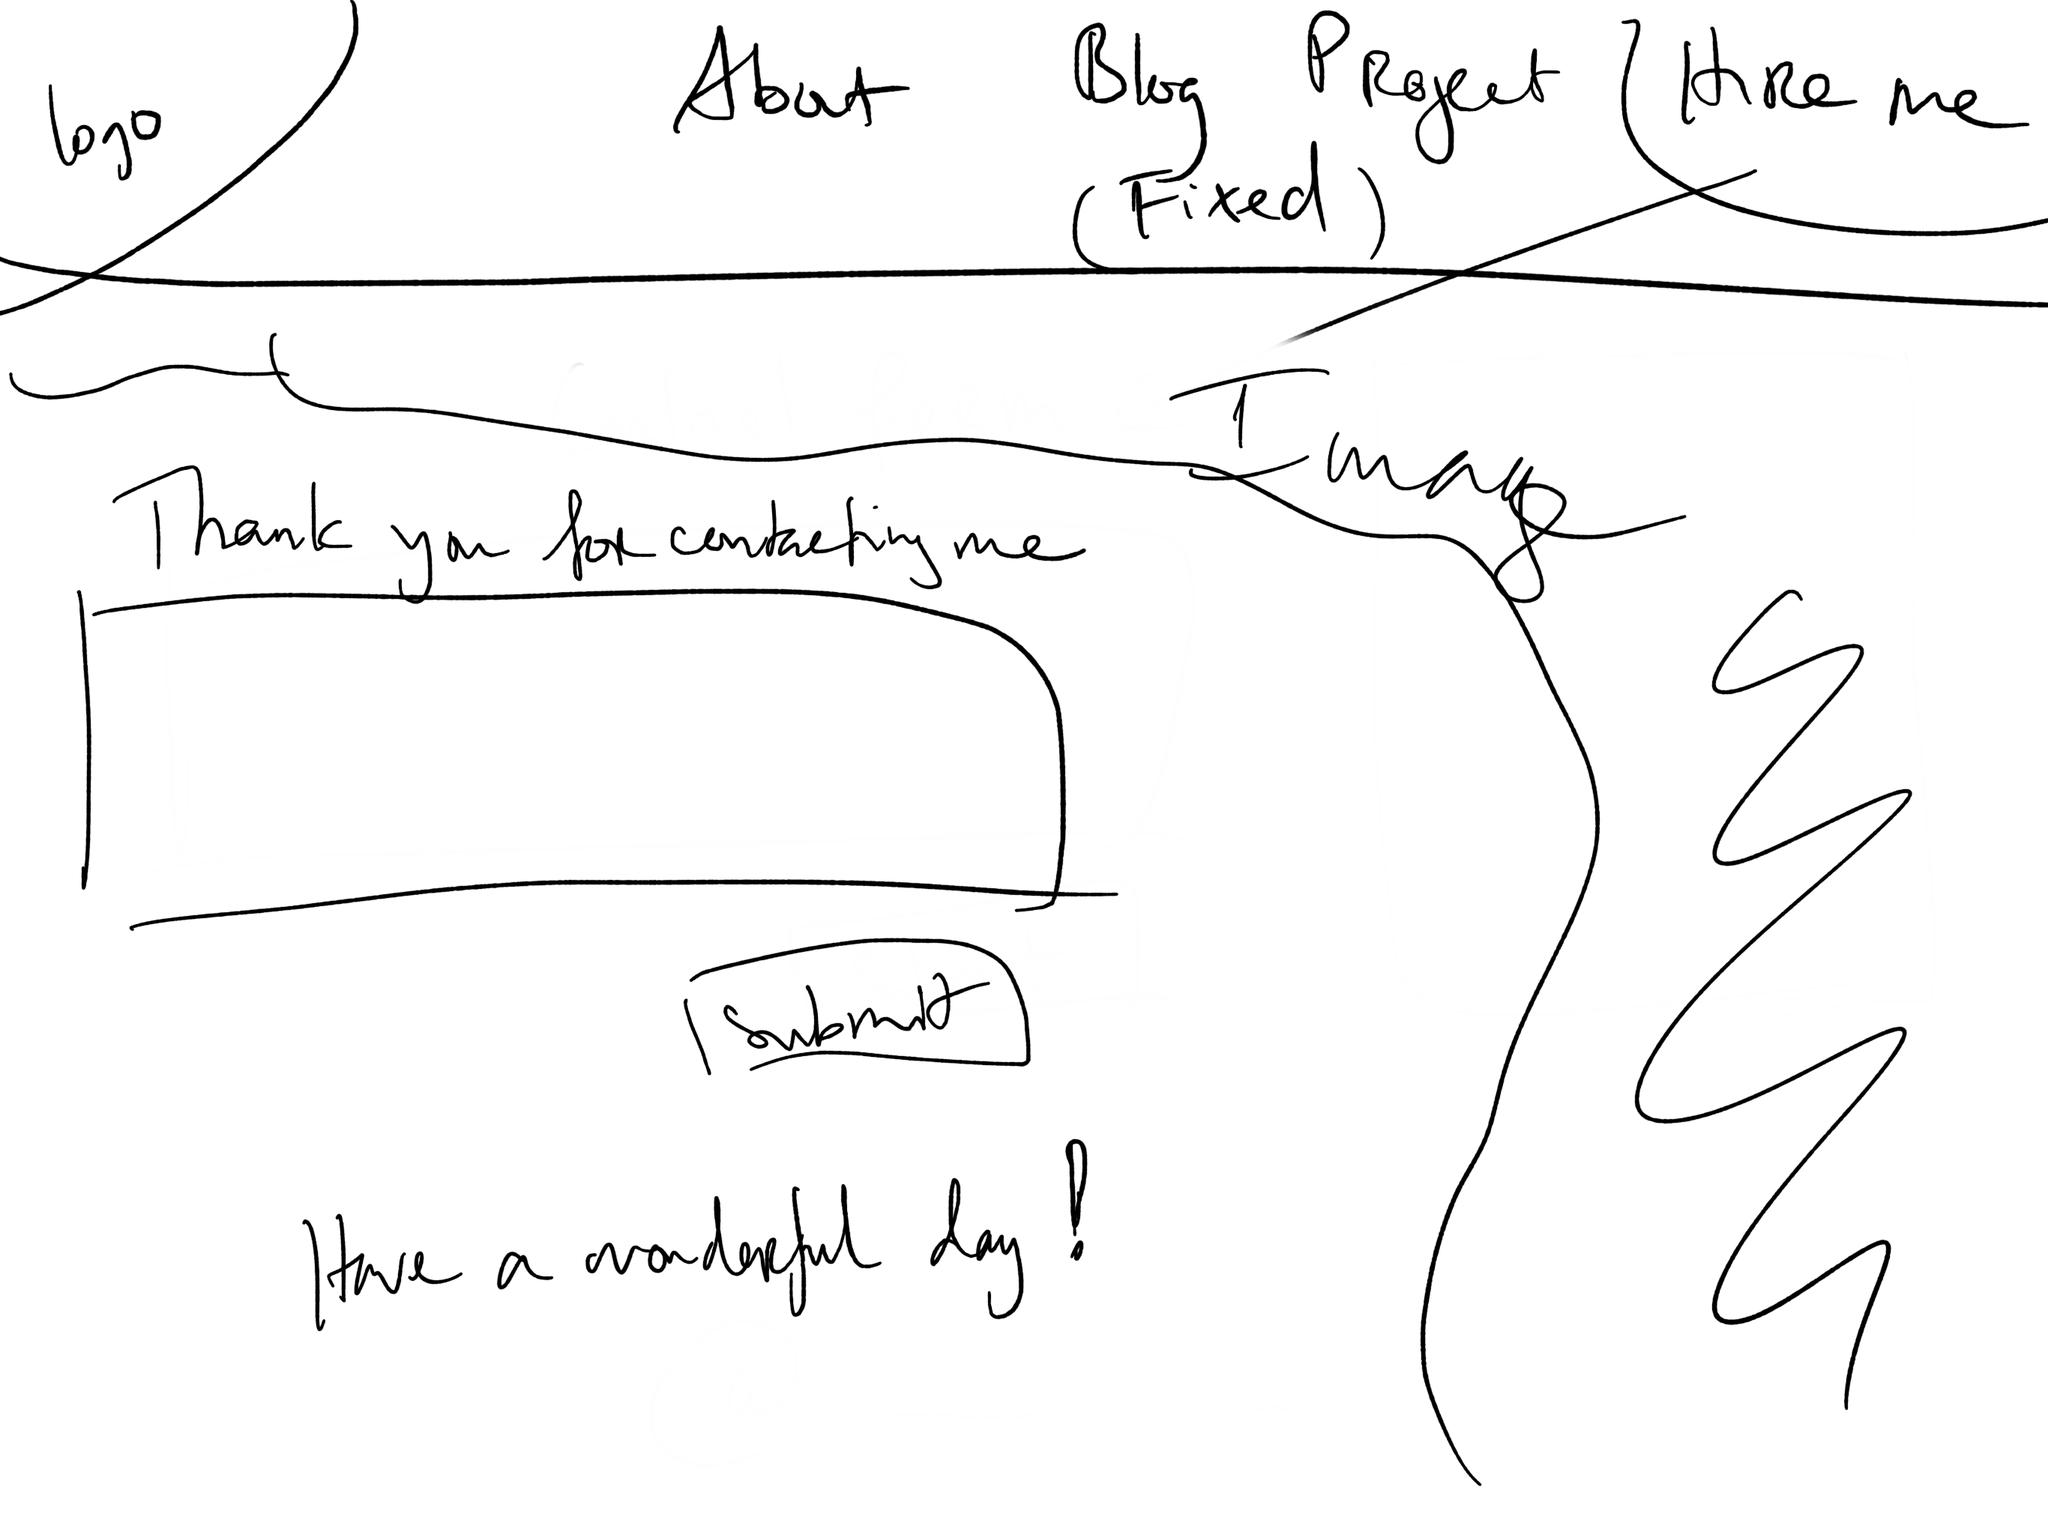 logo About Blog Project Hire me
(Fixed)
Image
Thank you for contacting me
submit
Have a wonderful day!